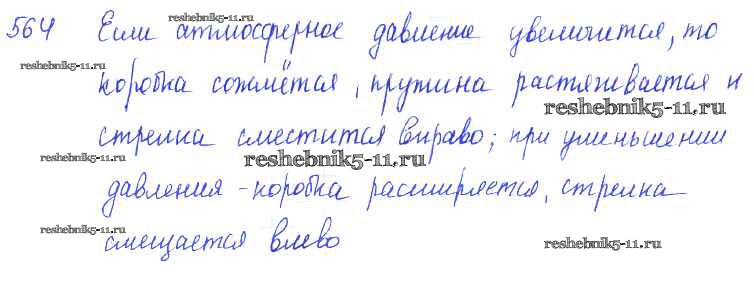 564 Если атмосферное давление увеличится, то
reshebnik5-11.ru
reshebnik5-11.ru
коробка сожмётся, пружина растягивается и
reshebnik5-11.ru
стрелка сместится вправо; при уменьшении
reshebnik5-11.ru
reshebnik5-11.ru
давления - коробка расширяется, стрелка
смещается влево
reshebnik5-11.ru
reshebnik5-11.ru